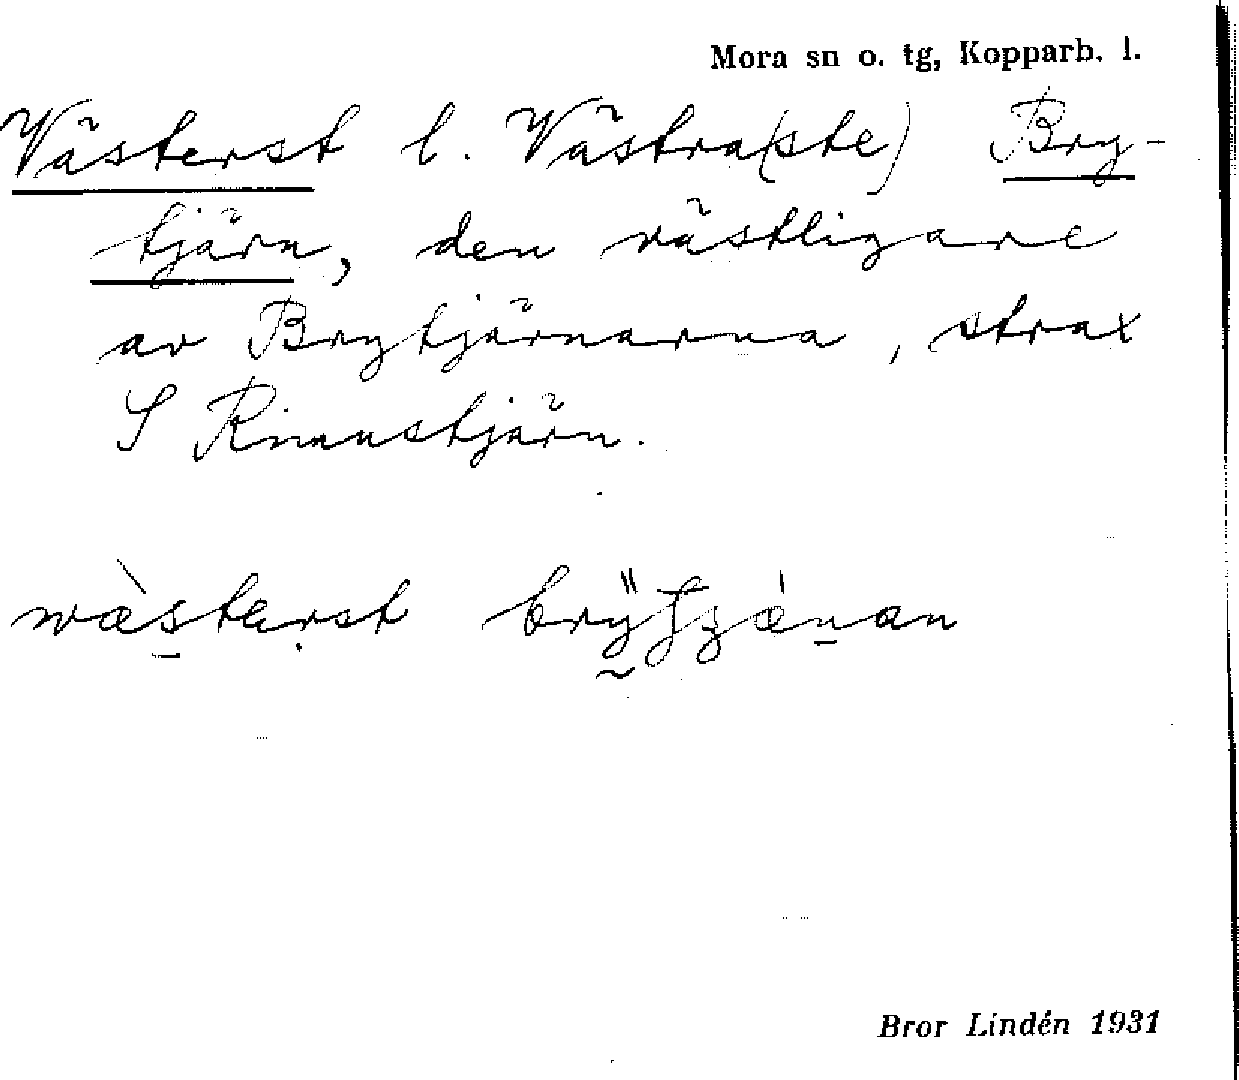 Mora sn o. tg, Kopparb. l.
Västerst l. Västra(ste) Bry-
tjärn, den västligare
av Brytjärnarna, strax
S Rinnstjärn.
wästerst
Bror Lindén 1931